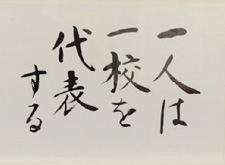 一人は
一校を
代表する